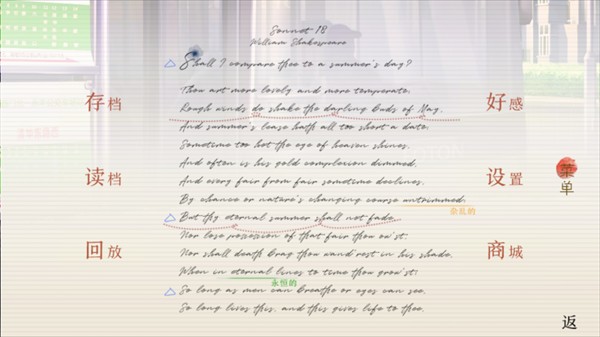 Sonnet 18
William Shakespeare
Shall I compare thee to a summer's day?
Thou art more lovely and more temperate.
Rough winds do shake the darling buds of May,
And summer's lease hath all too short a date.
Sometime too hot the eye of heaven shines,
And often is his gold complexion dimmed,
And every fair from fair sometime declines,
By chance or nature's changing course untrimmed.
杂乱的
But thy eternal summer shall not fade,
Nor lose possession of that fair thou ow'st;
Nor shall death brag thou wand'rest in his shade,
When in eternal lines to time thou grow'st:
永恒的
So long as men can breathe or eyes can see,
So long lives this, and this gives life to thee.
存档
读档
回放
好感
设置
商城
菜单
返